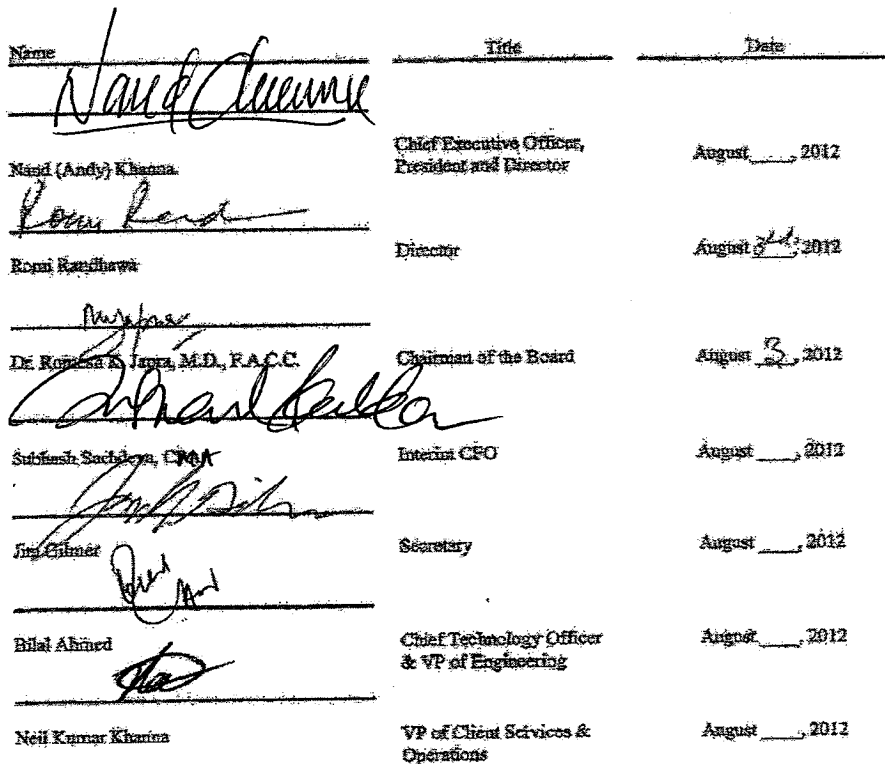 Name Title Date
Nand (Andy) Khanna Chief Executive Officer, August ____, 2012
President and Director
Romi Randhawa Director August 3rd, 2012
Dr. Romesh K. Japra, M.D., F.A.C.C. Chairman of the Board August 3, 2012
Subhash Sachdeva, CMA Interim CFO August ____, 2012
Jim Gilmer Secretary August ____, 2012
Bilal Ahmed Chief Technology Officer August ____, 2012
& VP of Engineering
Neil Kumar Khanna VP of Client Services & August ____, 2012
Operations